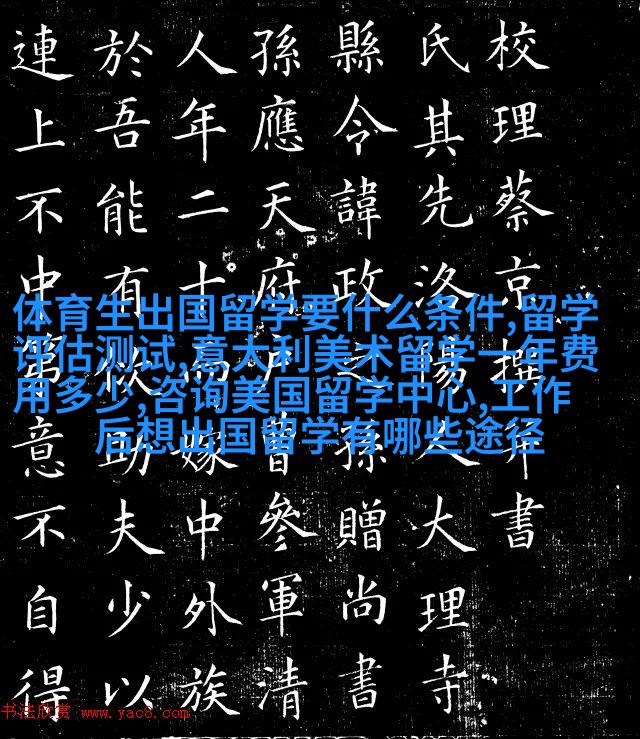 校理蔡京撰并書
氏其先洛陽人大理寺
縣令諱政之孫贈尚書
孫應天府户曹參軍清
人年二十嫁中外族
於吾能有助夫少以
連上不中第意不自得
体育生出国留学要什么条件,留学
评估测试,意大利美术留学一年费
用多少,咨询美国留学中心,工作
后想出国留学有哪些途径
书法欣赏 www.yac8.com